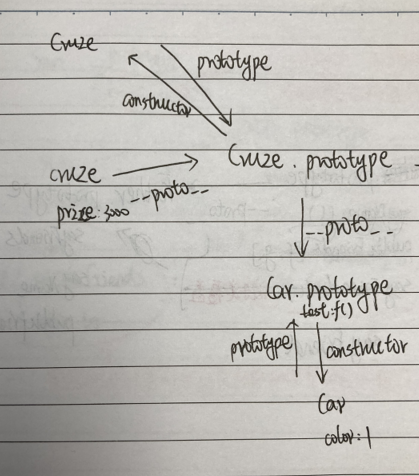 Cruze
prototype
constructor
Cruze.prototype
cruze
__proto__
prize:3000
__proto__
Car.prototype
test:f()
prototype
constructor
Car
color:1